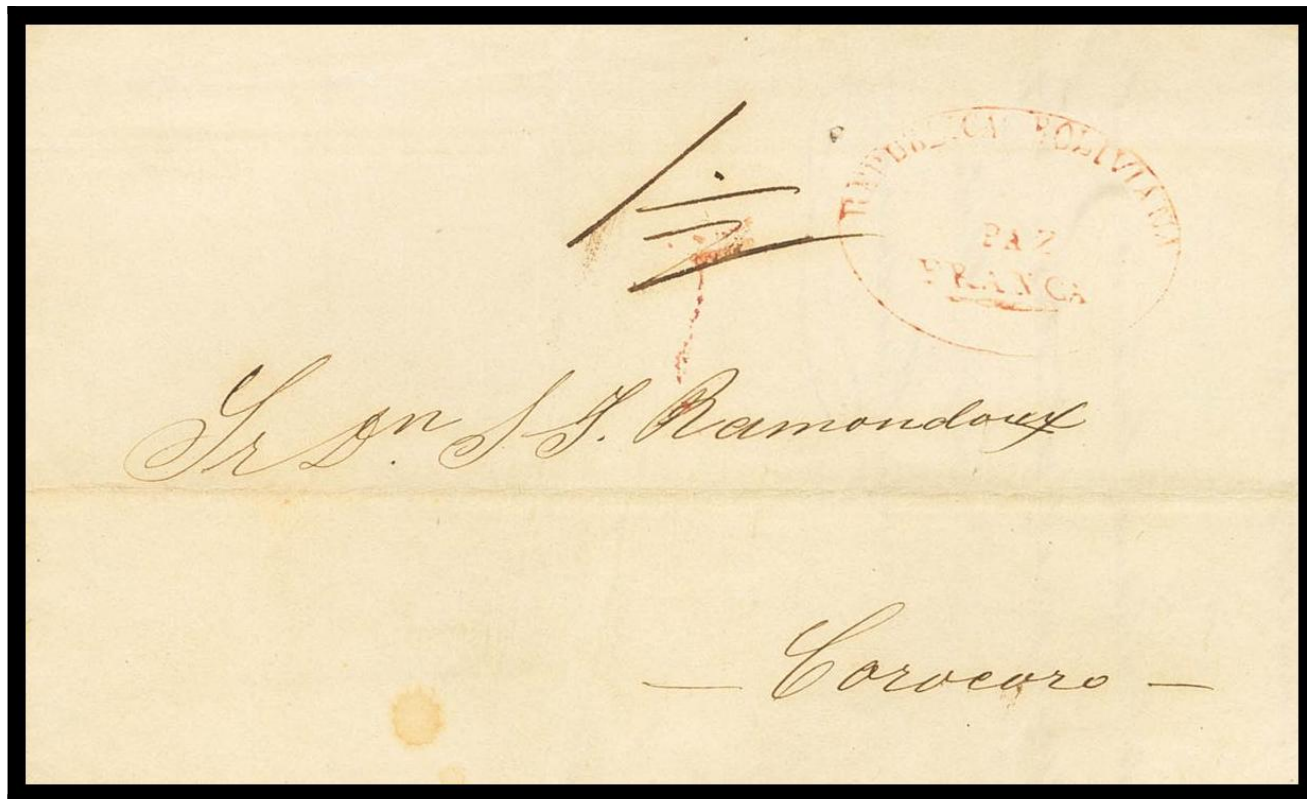 REPUBLICA BOLIVIANA
PAZ
FRANCA
Sr Dn. S. F. Ramondoux
— Corocoro —